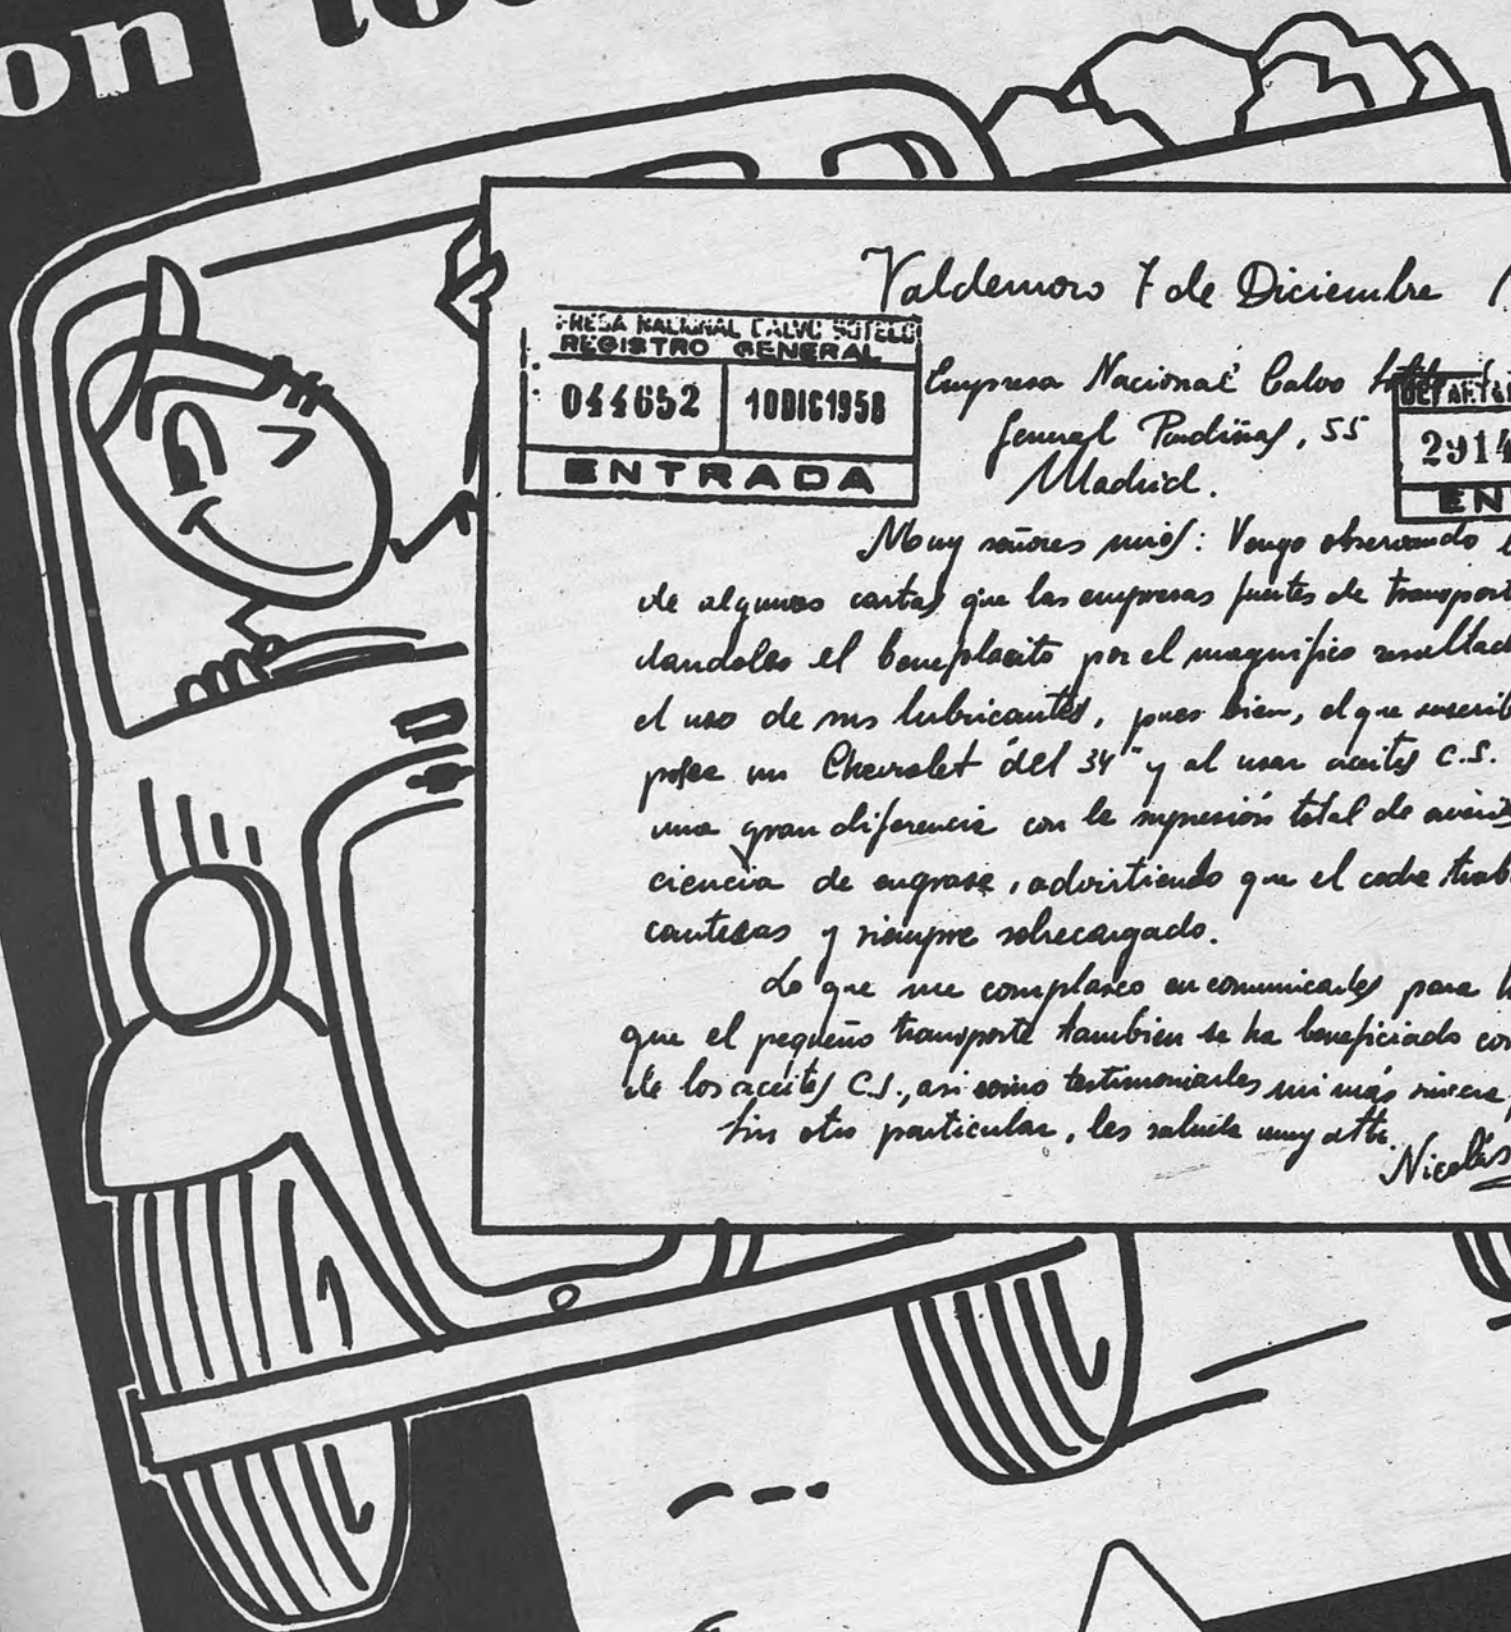 on
Valdemoro 7 de Diciembre
REGISTRO GENERAL
044652 10 DIC 1958
ENTRADA
Empresa Nacional Calvo Sotelo
General Pardiñas, 55
2914
EN
Madrid.
Muy señores mios: Vengo observando
de algunas cartas que las empresas fuertes de transport
dandoles el beneplacito por el magnifico resultad
el uso de sus lubricantes, pues bien, el que suscrib
posee un Chevrolet "del 34" y al usar aceites C.S.
una gran diferencia con la supresión total de
ciencia de engrase, advirtiendo que el coche trab
canteras y siempre sobrecargado.
Lo que me complazco en comunicarles para
que el pequeño transporte tambien se ha beneficiado con
de los aceites C.S., asi como testimoniarles mi más sincera
Sin otro particular, les saluda muy atte.
Nicolás